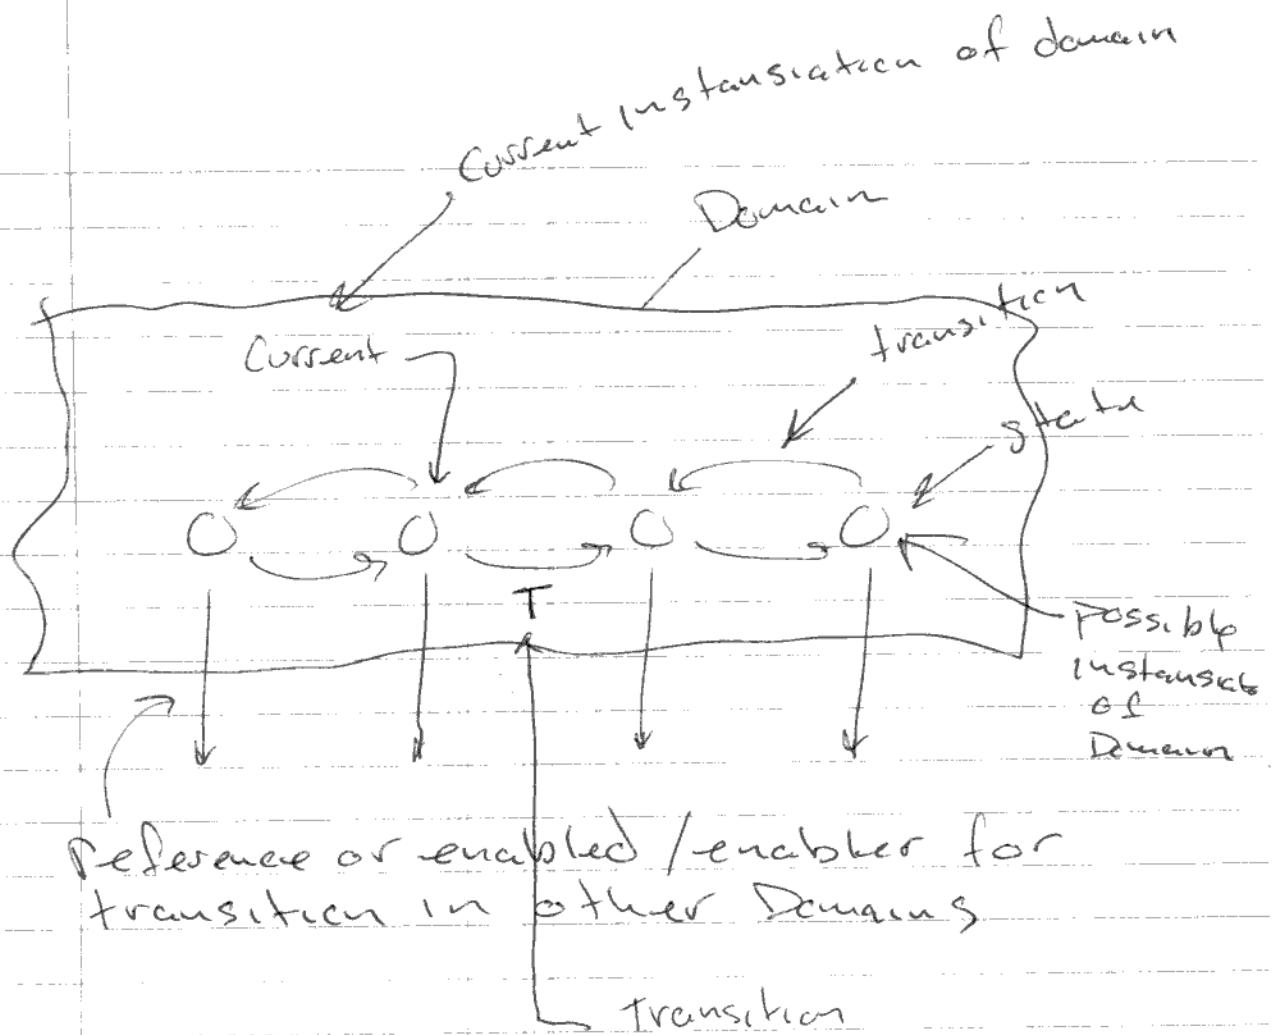 Current instansiation of domain
Domain
transition
Current
state
T
possible
instansiate
of
Domain
reference or enabled/enabler for
transition in other Domains
transition